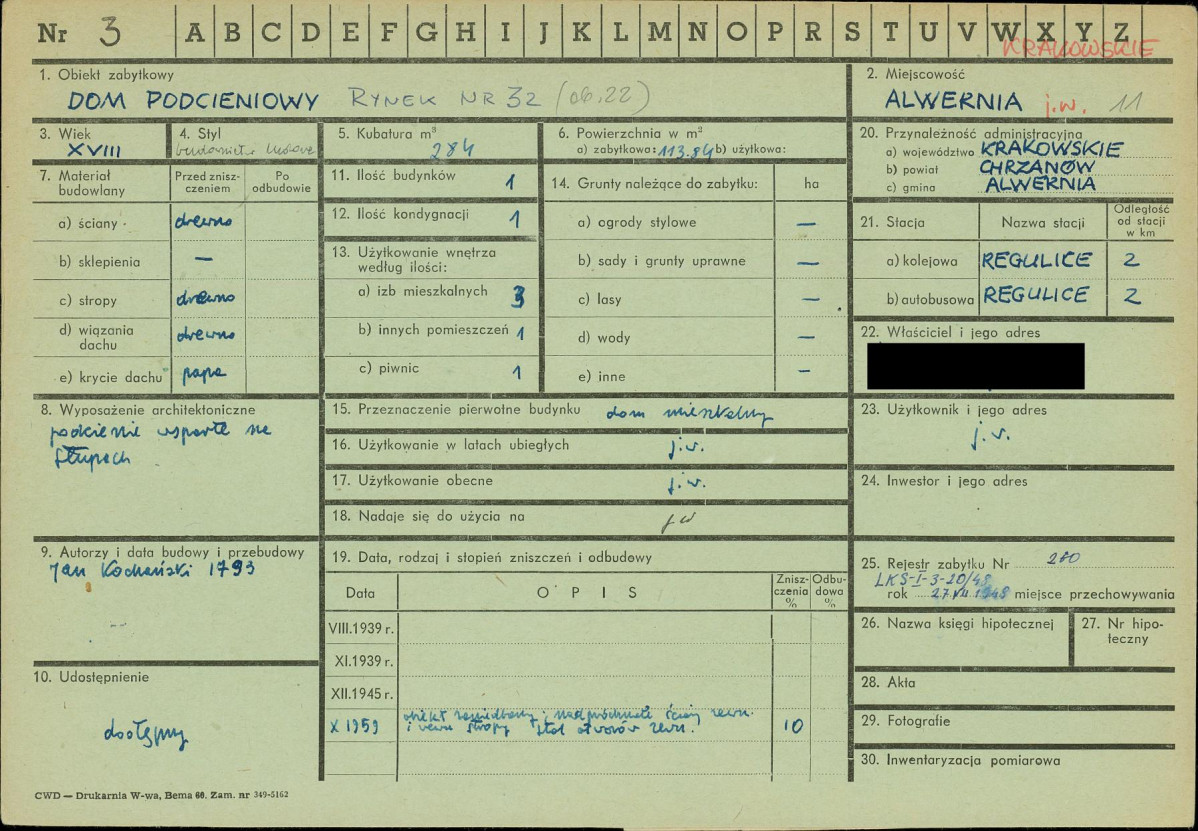 Nr 3 A B C D E F G H I J K L M N O P R S T U V W X Y Z
KRAKOWSKIE
1. Obiekt zabytkowy
DOM PODCIENIOWY RYNEK NR 32 (06.22)
2. Miejscowość
ALWERNIA j.w. 11
3. Wiek
XVIII
4. Styl
5. Kubatura m³
284
6. Powierzchnia w m²
a) zabytkowa: 113.84 b) użytkowa:
7. Materiał budowlany
Przed znisz-
czeniem
Po
odbudowie
a) ściany drewno
b) sklepienia —
c) stropy drewno
d) wiązania
dachu drewno
e) krycie dachu papa
8. Wyposażenie architektoniczne
podcienie wsparte na
słupach
9. Autorzy i data budowy i przebudowy
Jan Kochański 1793
10. Udostępnienie
dostępny
11. Ilość budynków 1
12. Ilość kondygnacji 1
13. Użytkowanie wnętrza
według ilości:
a) izb mieszkalnych 3
b) innych pomieszczeń 1
c) piwnic 1
14. Grunty należące do zabytku: ha
a) ogrody stylowe —
b) sady i grunty uprawne —
c) lasy —
d) wody —
e) inne —
15. Przeznaczenie pierwotne budynku dom mieszkalny
16. Użytkowanie w latach ubiegłych j.w.
17. Użytkowanie obecne j.w.
18. Nadaje się do użycia na jw
19. Data, rodzaj i stopień zniszczeń i odbudowy
Data OPIS Znisz-
czenia
% Odbu-
dowa
%
VIII.1939 r.
XI.1939 r.
XII.1945 r.
X 1959 obiekt zaniedbany, nadpróchniałe ściany zewn.
i wewn stropy stol otworów zewn. 10
20. Przynależność administracyjna
a) województwo KRAKOWSKIE
b) powiat CHRZANÓW
c) gmina ALWERNIA
21. Stacja Nazwa stacji Odległość
od stacji
w km
a) kolejowa REGULICE 2
b) autobusowa REGULICE 2
22. Właściciel i jego adres
23. Użytkownik i jego adres
j.w.
24. Inwestor i jego adres
25. Rejestr zabytku Nr 280
LKS-I-3-20/48
rok 27.VII 1948 miejsce przechowywania
26. Nazwa księgi hipotecznej
27. Nr hipo-
teczny
28. Akta
29. Fotografie
30. Inwentaryzacja pomiarowa
CWD — Drukarnia W-wa, Bema 60. Zam. nr 349-5162